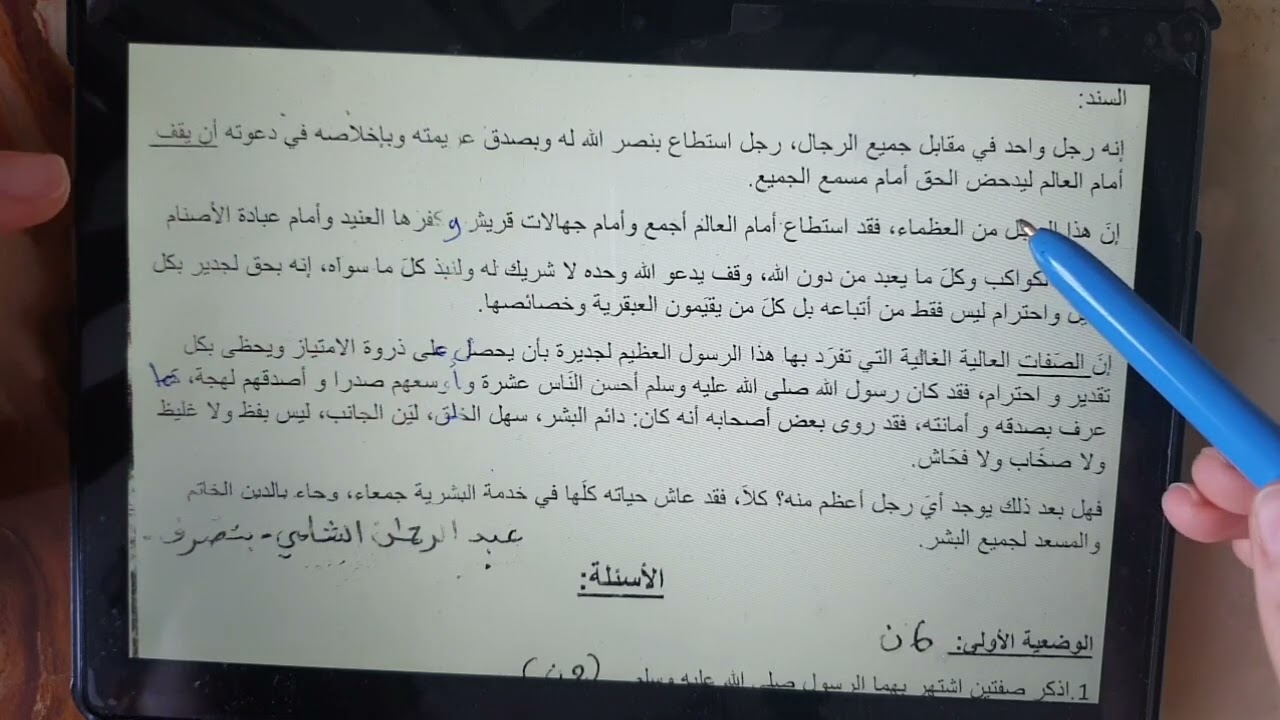 السند:
إنه رجل واحد في مقابل جميع الرجال، رجل استطاع بنصر الله له وبصدق عزيمته وبإخلاصه في دعوته أن يقف
أمام العالم ليدحض الحق أمام مسمع الجميع.
إنَ هذا من العظماء، فقد استطاع أمام العالم أجمع وأمام جهالات قريش وكفرها العنيد وأمام عبادة الأصنام
وكلَ ما يعبد من دون الله، وقف يدعو الله وحده لا شريك له ولنبذ كلَ ما سواه، إنه بحق لجدير بكل
واحترام ليس فقط من أتباعه بل كلَ من يقيَمون العبقرية وخصائصها.
إنَ الصَفات العالية الغالية التي تفرَد بها هذا الرسول العظيم لجديرة بأن يحصل على ذروة الامتياز ويحظى بكل
تقدير و احترام، فقد كان رسول الله صلى الله عليه وسلم أحسن النَاس عشرة وأوسعهم صدرا و أصدقهم لهجة، كما
عرف بصدقه و أمانته، فقد روى بعض أصحابه أنه كان: دائم البشر، سهل الخلق، ليَن الجانب، ليس بفظ ولا غليظ
ولا صخَاب ولا فحَاش.
فهل بعد ذلك يوجد أيَ رجل أعظم منه؟ كلاَ، فقد عاش حياته كلَها في خدمة البشرية جمعاء، وجاء بالدين الخاتم
والمسعد لجميع البشر.
عبد الرحمن الشامي - بتصرف -
الأسئلة:
الوضعية الأولى: 6ن
1.اذكر صفتين اشتهر بهما الرسول صلى الله عليه وسلم (2ن)